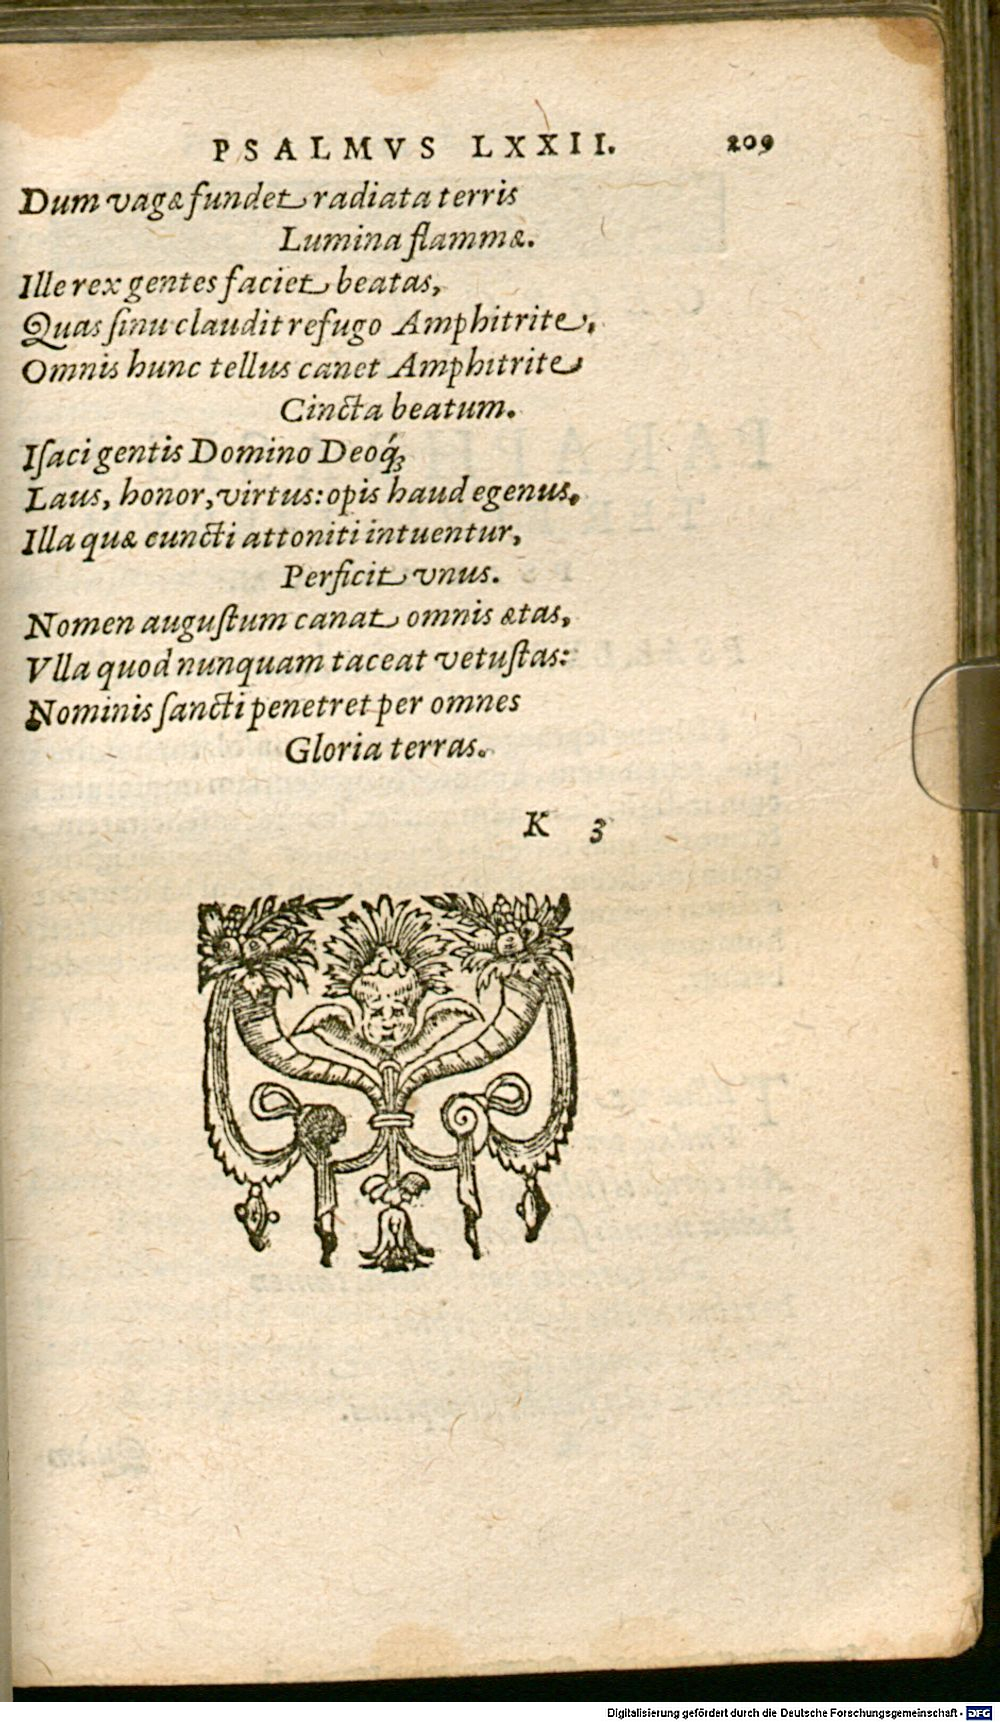 PSALMVS LXXII. 209
Dum vagæ fundet radiata terris
Lumina flammæ.
Ille rex gentes faciet beatas,
Quas ſinu claudit refugo Amphitrite,
Omnis hunc tellus canet Amphitrite
Cincta beatum.
Iſaci gentis Domino Deoq́;
Laus, honor, virtus: opis haud egenus,
Illa quæ euncti attoniti intuentur,
Perficit vnus.
Nomen auguſtum canat omnis ætas,
Vlla quod nunquam taceat vetuſtas:
Nominis ſancti penetret per omnes
Gloria terras.
K 3
Digitalisierung gefördert durch die Deutsche Forschungsgemeinschaft - DFG